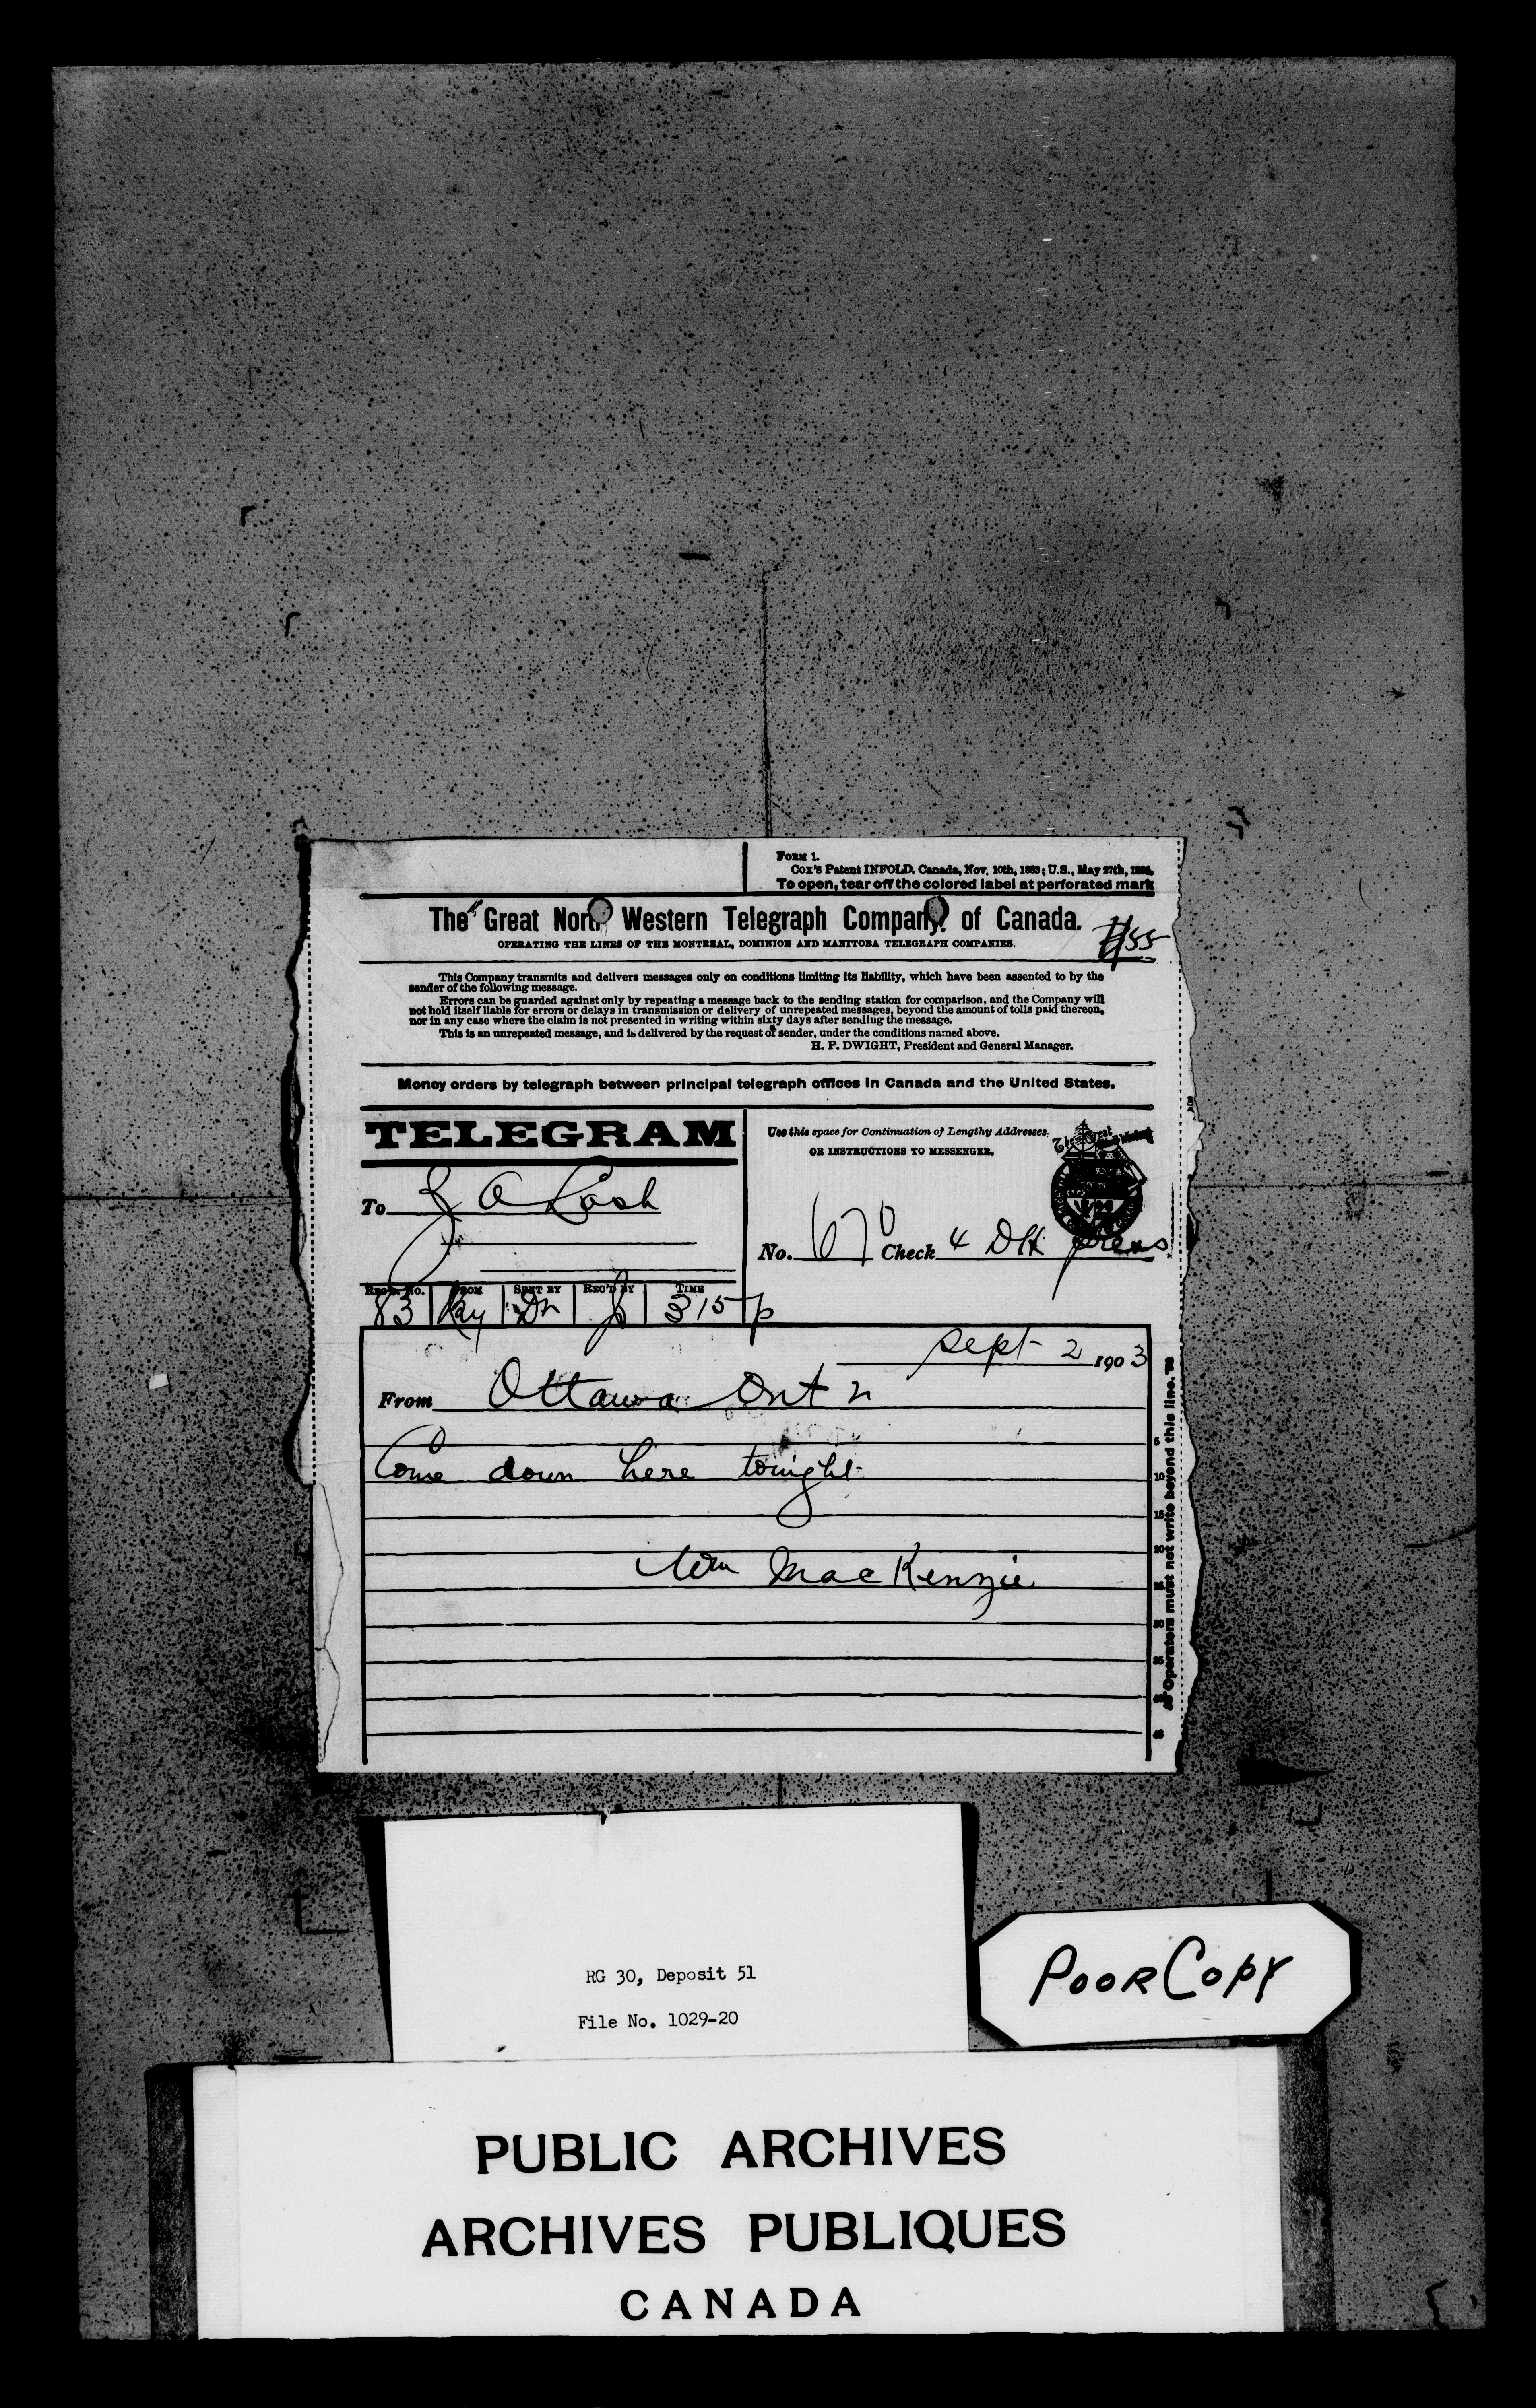 FORM 1.
Cox's Patent INFOLD. Canada, Nov. 10th, 1883; U.S., May 27th, 1884.
To open, tear off the colored label at perforated mark
The Great North Western Telegraph Company of Canada.
OPERATING THE LINES OF THE MONTREAL, DOMINION AND MANITOBA TELEGRAPH COMPANIES.
55
This Company transmits and delivers messages only on conditions limiting its liability, which have been assented to by the
sender of the following message.
Errors can be guarded against only by repeating a message back to the sending station for comparison, and the Company will
not hold itself liable for errors or delays in transmission or delivery of unrepeated messages, beyond the amount of tolls paid thereon,
nor in any case where the claim is not presented in writing within sixty days after sending the message.
This is an unrepeated message, and is delivered by the request of sender, under the conditions named above.
H. P. DWIGHT, President and General Manager.
Money orders by telegraph between principal telegraph offices in Canada and the United States.
TELEGRAM
Use this space for Continuation of Lengthy Addresses.
OR INSTRUCTIONS TO MESSENGER.
To
No. 670 Check 4 DH
REC'D. NO. FROM SENT BY REC'D BY TIME
83 Ky Dn 315 p
Sept 2 1903
From Ottawa Ont 2
Come down here tonight
Wm MacKenzie
5
10
15
20
25
30
35
40
45
Operators must not write beyond this line.
RG 30, Deposit 51
File No. 1029-20
POOR COPY
PUBLIC ARCHIVES
ARCHIVES PUBLIQUES
CANADA